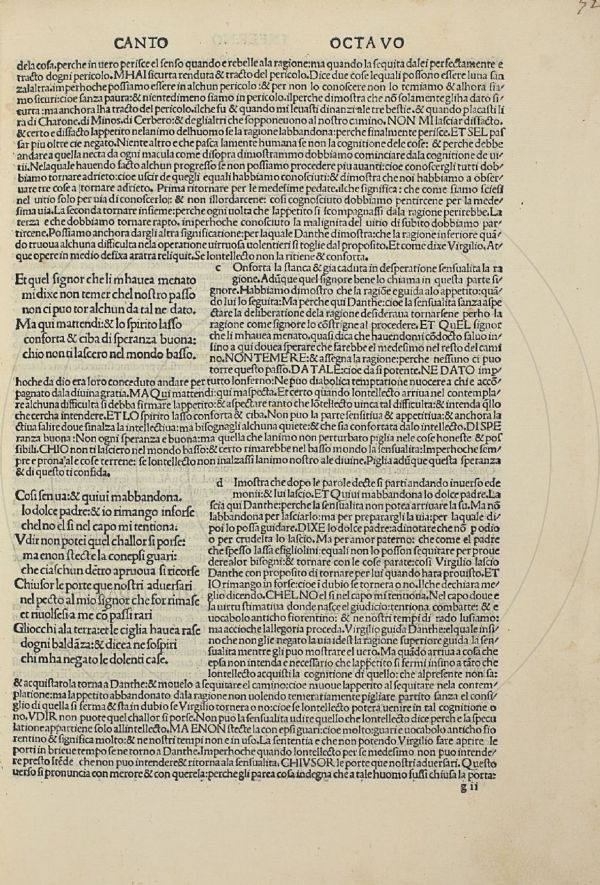 CANTO OCTAVO
dela cosa. perche in uero perisce el senso quando e rebelle ala ragione: ma quando la sequita dalei perfectamente e
tracto dogni pericolo. MHAI sicurta renduta & tracto del pericolo. Dice due cose lequali possono essere luna san
zalaltra. imperhoche possiamo essere in alchun pericolo: & per non lo conoscere non lo temiamo & alhora sia
mo sicuri: cioe sanza paura: & nientedimeno siamo in pericolo. ilperche dimostra che nō solamente gliha dato si
curta: ma anchora lha tracto del pericolo. ilche fu & quando mi leuasti dinanzi ale tre bestie. & quando placasti li
ra di Charone. di Minos. di Cerbero: & deglialtri che sopponeuono al nostro camino. NON MI lasciar disfacto.
& certo e disfacto lappetito nelanimo delhuomo se la ragione labbandona: perche finalmente perisce. ET SEL pas
sar piu oltre cie negato. Niente altro e che pasca lamente humana se non la cognitione dele cose: & perche debbe
andare a quella necta da ogni macula come disopra dimostrammo dobbiamo cominciare dala cognitione de ui
tii. Nelaquale hauendo facto alchun progresso se non possiamo procedere piu auanti: cioe conoscergli tutti dob
biamo tornare adrieto: cioe uscir de quegli equali habbiamo conosciuti: & dimostra che noi habbiamo a obser
uare tre cose a tornare adrieto. Prima ritornare per le medesime pedate. ilche significa: che come siamo sciesi
nel uitio solo per uia di conoscerlo: & non illordarcene: cosi cognosciuto dobbiamo pentircene per la mede
sima uia. La seconda tornare insieme: perche ogni uolta che lappetito si scompagnassi dala ragione perirebbe. La
terza e che dobbiamo tornare rapto. imperhoche conosciuto la malignita del uitio di subito dobbiamo par
tircene. Possiamo anchora dargli altra significatione: per laquale Danthe dimostra: che la ragione inferiore quā
do truoua alchuna difficulta nela operatione uirtuosa uolentieri si toglie dal proposito. Et come dixe Virgilio. At
que opere in medio defixa aratra reliquit. Se lontellecto non la ritiene & conforta.
Et quel signor che li mhauea menato
mi dixe non temer chel nostro passo
non ci puo tor alchun da tal ne dato.
Ma qui mattendi: & lo spirito lasso
conforta & ciba di speranza buona:
chio non ti lascero nel mondo basso.
c Onforta la stanca & gia caduta in desperatione sensualita la ra
gione. Adūque quel signore bene lo chiama in questa parte si
gnore. Habbiamo dimostro che la ragiōe e guida alo appetito: quā
do lui lo seguita: Ma perche qui Danthe: cioe la sensualita sanza aspe
ctare la deliberatione dela ragione desideraua tornarsene perho la
ragione come signore lo cōstrigne al procedere. ET QuEL signor
che li mhauea menato. quasi dica che hauendomi cōdocto saluo in
sino a qui douea sperare che farebbe el medesimo nel resto del cami
no. NON TEMERE: & assegna la ragione: perche nessuno ci puo
torre questo passo. DA TALE: cioe da si potente. NE DATO imp
hoche da dio era loro conceduto andare per tutto lonferno: Ne puo diabolica temptatione nuocere a chi e accō
pagnato dala diuina gratia. MA Qui mattendi: qui maspecta. Et certo quando lontellecto arriua nel contempla
re alchuna difficulta si debba firmare lappetito: & aspectare tanto che lōtellecto uinca tal difficulta: & intenda q̄llo
che cercha intendere. ET LO spirito lasso conforta & ciba. Non puo la parte sensitiua & appetitiua: & anchora la
ctiua salire doue sinalza la intellectiua: ma bisognagli alchuna quiete: & che sia confortata dalo intellecto. DI SPE
ranza buona: Non ogni speranza e buona: ma quella che lanimo non perturbato piglia nele cose honeste & pos
sibili. CHIO non ti lasciero nel mondo basso: & certo rimarebbe nel basso mondo la sensualita. Imperhoche sem
pre e prona ale cose terrene: se lontellecto non inalzassi lanimo nostro ale diuine. Piglia adūque questa speranza
& di questo ti confida.
Cosi sen ua: & quiui mabbandona.
lo dolce padre: & io rimango inforse
chel no el si nel capo mi tentiona:
Vdir non potei quel challor si porse:
ma e non stecte la con epsi guari:
che ciaschun dētro a pruoua si ricorse
Chiusor le porte que nostri aduersari
nel pecto al mio signor che for rimase
et riuolsesi a me co passi rari
Gliocchi ala terra: et le ciglia hauea rase
dogni baldāza: & dicea ne sospiri
chi mha negato le dolenti case.
d Imostra che dopo le parole decte si parti andando inuerso ede
monii: & lui lascio. ET Quiui mabbandona lo dolce padre. La
scia qui Danthe: perche la sensualita non potea arriuare la su. Ma nō
labbandona per lasciarlo: ma per prepararglì la uia: per laquale di
poi lo possa guidare. DIXE lo dolce padre: adinotare che nō p odio
o per crudelta lo lascio. Ma per amor paterno: che come el padre
che spesso lassa efigliolini: equali non lo posson sequitare per proue
dere alor bisogni: & tornare con le cose parate: cosi Virgilio lascio
Danthe con proposito di tornare per lui quando hara prouisto. ET
IO rimango in forse: cioe ī dubio se tornera o no. Ilche dechiara me
glio dicendo. CHEL NO el si nel capo mi tentiona. Nel capo doue e
la uirtu stimatiua donde nasce el giudicio: tentiona combatte: & e
uocabolo anticho fiorentino: & ne nostri tempi di rado lusiamo:
ma accioche lallegoria proceda. Virgilio guida Danthe: elquale insi
no che non glie negato la uia idest la ragione superiore guida la sen
sualita mentre gli puo mostrare el uero. Ma quādo arriua a cosa che
epsa non intenda e necessario che lappetito si fermi insino a tāto che
lontellecto acquisti la cognitione di quello: che alpresente non sa:
& acquistatola torna a Danthe: & mouelo a sequitare el camino: cioe muoue lappetito al sequitare nela contem
platione: ma lappetito abbandonato dala ragione non uolendo temerariamente pigliare partito sanza el consi
glio di quella si ferma & sta in dubio se Virgilio tornera o no: cioe se lontellecto potera uenire in tal cognitione o
no. VDIR non puote quel challor si porse. Non puo la sensualita udire quello che lontellecto dice perche la specu
latione appartiene solo allintellecto. MA E NON stecte la con epsi guari: cioe molto: guari e uocabolo anticho fio
rentino & significa molto: & ne nostri tempi non e in uso. La sententia e che non potendo Virgilio fare aprire le
porti in brieue tempo se ne torno a Danthe. Imperhoche quando lontellecto per se medesimo non puo intende
re presto Itēde che non puo intendere & ritorna ala sensualita. CHIVSOR le porte que nostri aduersari. Questo
uerso si pronuncia con merore & con querela: perche gli parea cosa indegna che a tale huomo fussi chiusa la porta:
g ii